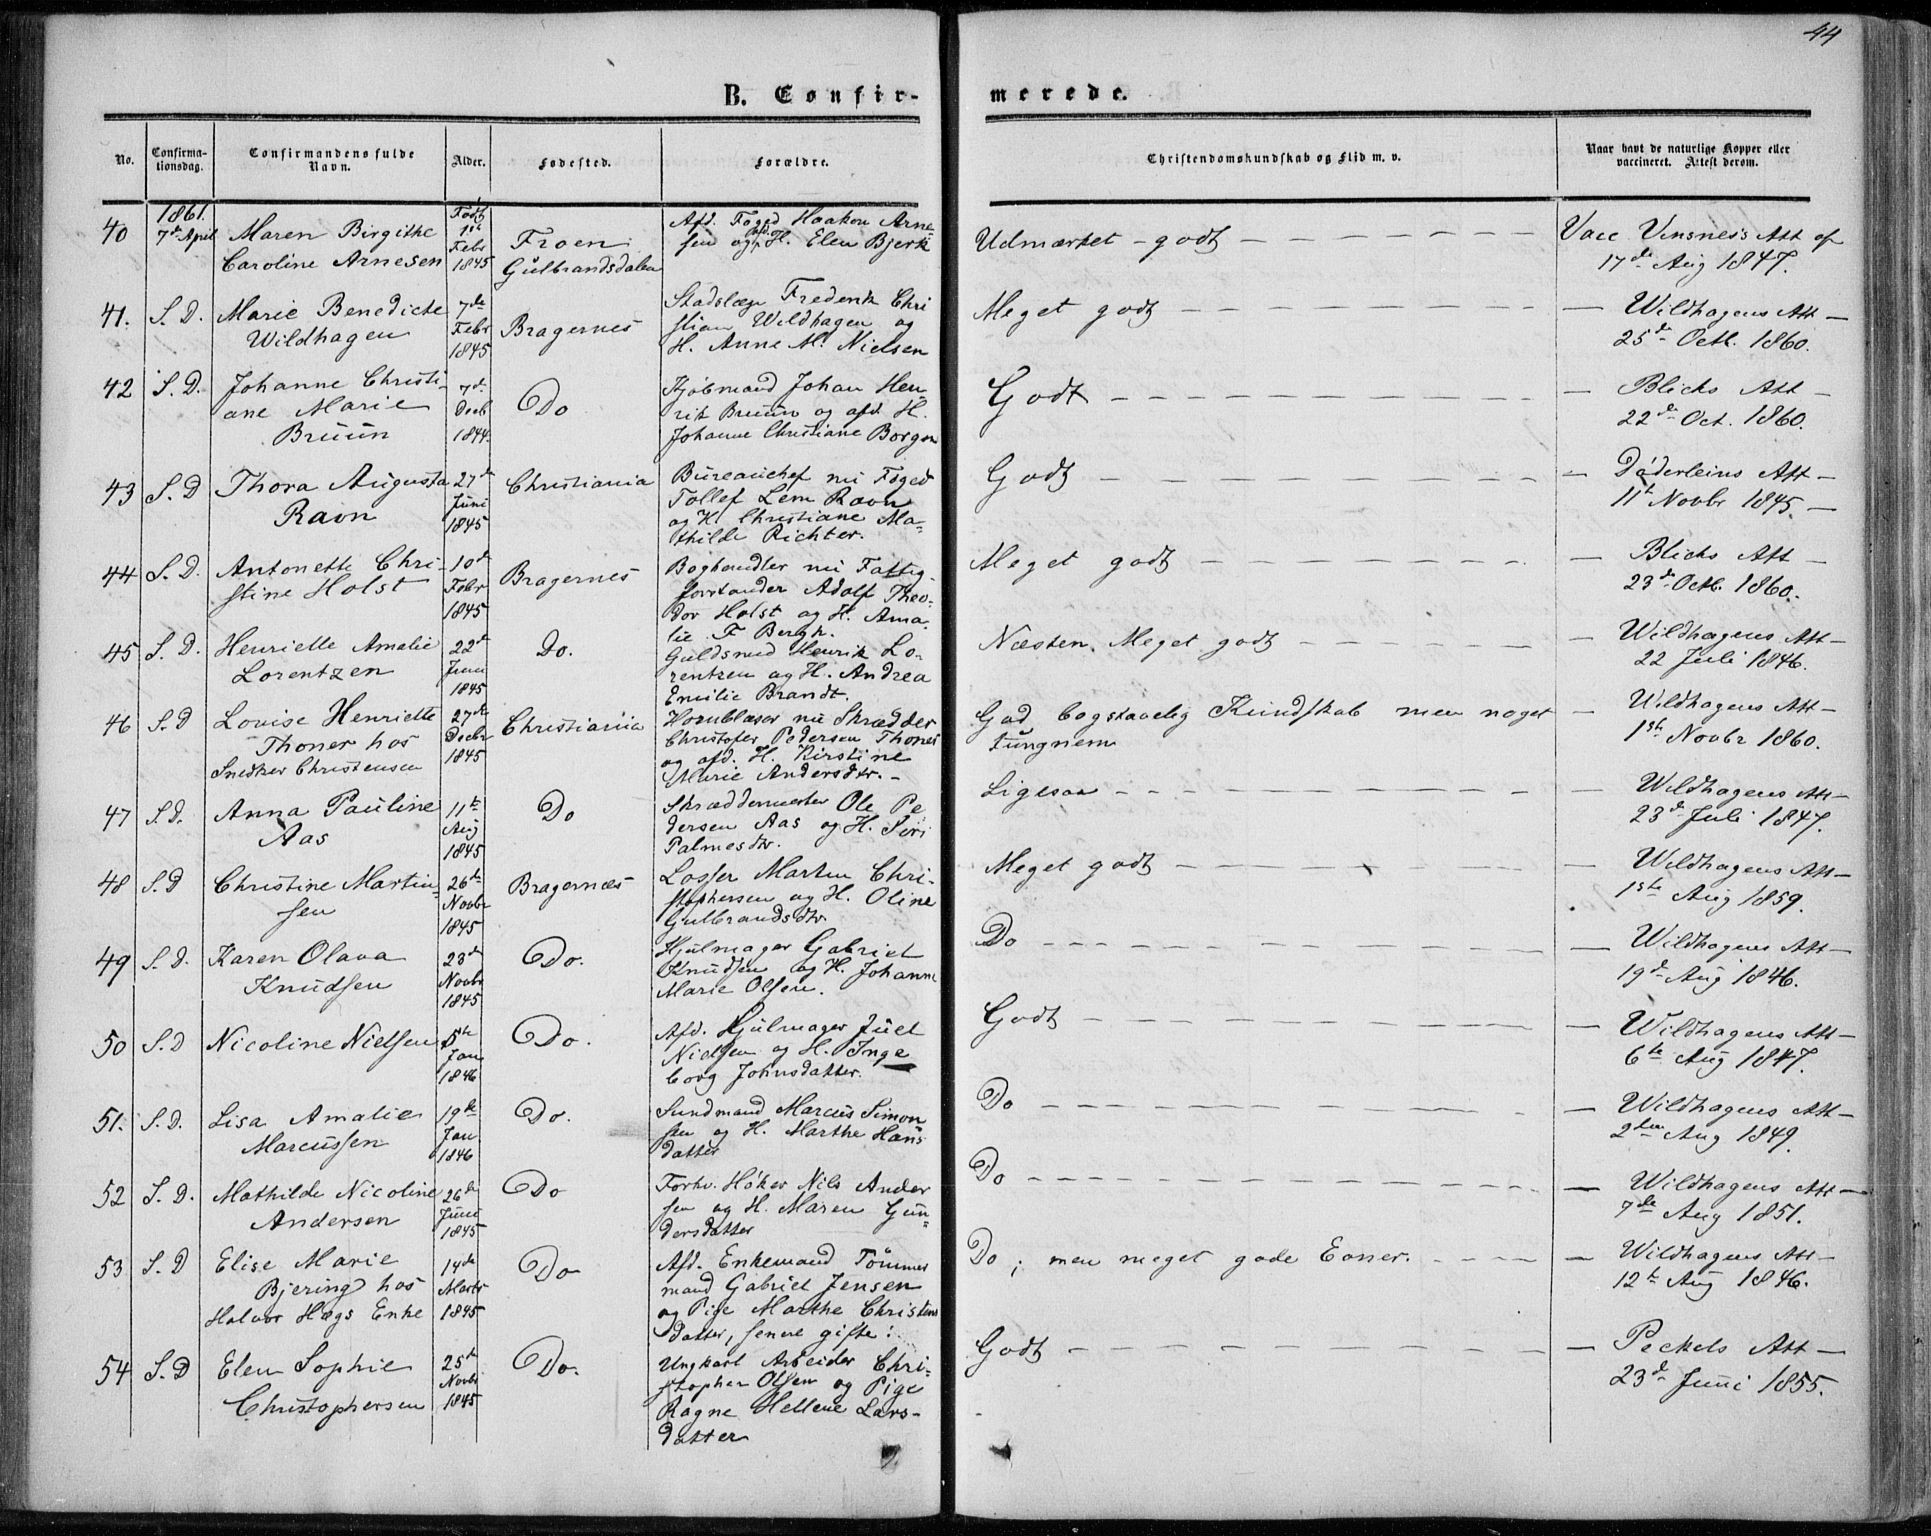 44
B. Confir-
merede.
No.
Confirma-
tionsdag.
Confirmandens fulde
Navn.
Alder.
Fødested.
Forældre.
Christendomskundskab og Flid m. v.
Naar havt de naturlige Kopper eller
vaccineret. Attest derom.
40
1861.
7de April
Maren Birgithe
Caroline Arnesen
Født
1ste
Febr
1845
Froen
Gulbrandsdalen
Afd. Foged Haakon Arne-
sen og afd. H. Elen Bjerk
Udmærket - godt
Vacc Vinsnes's Att af
17de Aug 1847.
41.
S. D.
Marie Benedicte
Wildhagen
7de
Febr
1845
Bragernes
Stadslæge Frederik Chri
stian Wildhagen og
H. Anne M. Nielsen
Meget godt
— Wildhagens Att —
25de Octb. 1860.
42
S. D.
Johanne Christi-
ane Marie
Bruun
7d.
Decb
1844
Do
Kjøbmand Johan Hen
rik Bruun og afd. H.
Johanne Christiane Borgen
Godt
— Blichs Att —
22de Oct. 1860.
43
S. D
Thora Augusta
Ravn
27d
Juni
1845
Christiania
Bureauchef nu Foged
Tollef Lem Ravn
og H. Christiane Ma-
thilde Richter.
Godt
— Døderleins Att —
11te Novbr 1845. —
44
S. D.
Antonette Chri-
stine Holst
10d
Febr
1845
Bragernes
Boghandler nu Fattig-
forstander Adolf Theo-
dor Holst og H. Ama-
lie F Bergh.
Meget godt
— Blichs Att —
23de Octb. 1860.
45
S. D.
Henriette Amalie
Lorentzen
22d
Juni
1845
Do.
Guldsmed Henrik Lo-
rentzen og H. Andrea
Emilie Brandt.
Næsten Meget godt
— Wildhagens Att —
22 Juli 1846.
46
S. D
Louise Henriette
Thoner hos
Snedker Christensen
27de
Decbr
1845
Christiania
Hornblæser nu Skrædder
Christofer Pedersen Thoner
og afd. H. Kirstine
Marie Andersdtr. -
God bogstavelig Kundskab men noget
tungnem
— Wildhagens Att —
1ste Novbr 1860.
47
S. D.
Anna Pauline
Aas
11te
Aug
1845
Do
Skræddermester Ole Pe
dersen Aas og H. Siri
Palmesdtr.
Ligesaa
— Wildhagens Att —
23de Juli 1847.
48
S. D
Christine Martin-
sen
26te
Novbr
1845
Bragernæs
Losser Martin Chri-
stophersen og H. Oline
Gulbrandsdtr
Meget godt
— Wildhagens Att —
1ste Aug 1859.
49
S. D.
Karen Olava
Knudsen
23d
Novbr
1845
Do.
Hjulmager Gabriel
Knudsen og H. Johanne
Marie Olsen.
Do
— Wildhagens Att —
19de Aug 1846.
50
S. D
Nicoline Nielsen
5te
Jan
1846
Do.
Afd. Hjulmager Juel
Nielsen og H. Inge
borg Johnsdatter.
Godt
— Wildhagens Att —
6te Aug 1847.
51.
S. D.
Lisa Amalie
Marcussen
19de
Jan
1846
Do.
Sundmand Marcus Simon
sen og H. Marthe Hans
datter
Do
— Wildhagens Att —
2den Aug 1849.
52
S. D.
Mathilde Nicoline
Andersen
26de
Juni
1845
Do
Forhv. Høker Nils Ander
sen og H. Maren Gun-
dersdatter
Do
— Wildhagens Att —
7de Aug 1851.
53
S. D
Elise Marie
Bjering hos
Halvor Hægs Enke
14de
Marts
1845
Do
Afd. Enkemand Tømmer
mand Gabriel Jensen
og Pige Marthe Christens
datter, senere gifte.
Do; men meget gode Evner.
— Wildhagens Att —
12te Aug 1846.
54
S. D
Elen Sophie
Christophersen
25de
Novbr
1845
Do.
Ungkarl Arbeider Chri-
stopher Olsen og Pige
Ragne Hellene Lars-
datter
Godt
— Peckels Att —
23de Juni 1855.